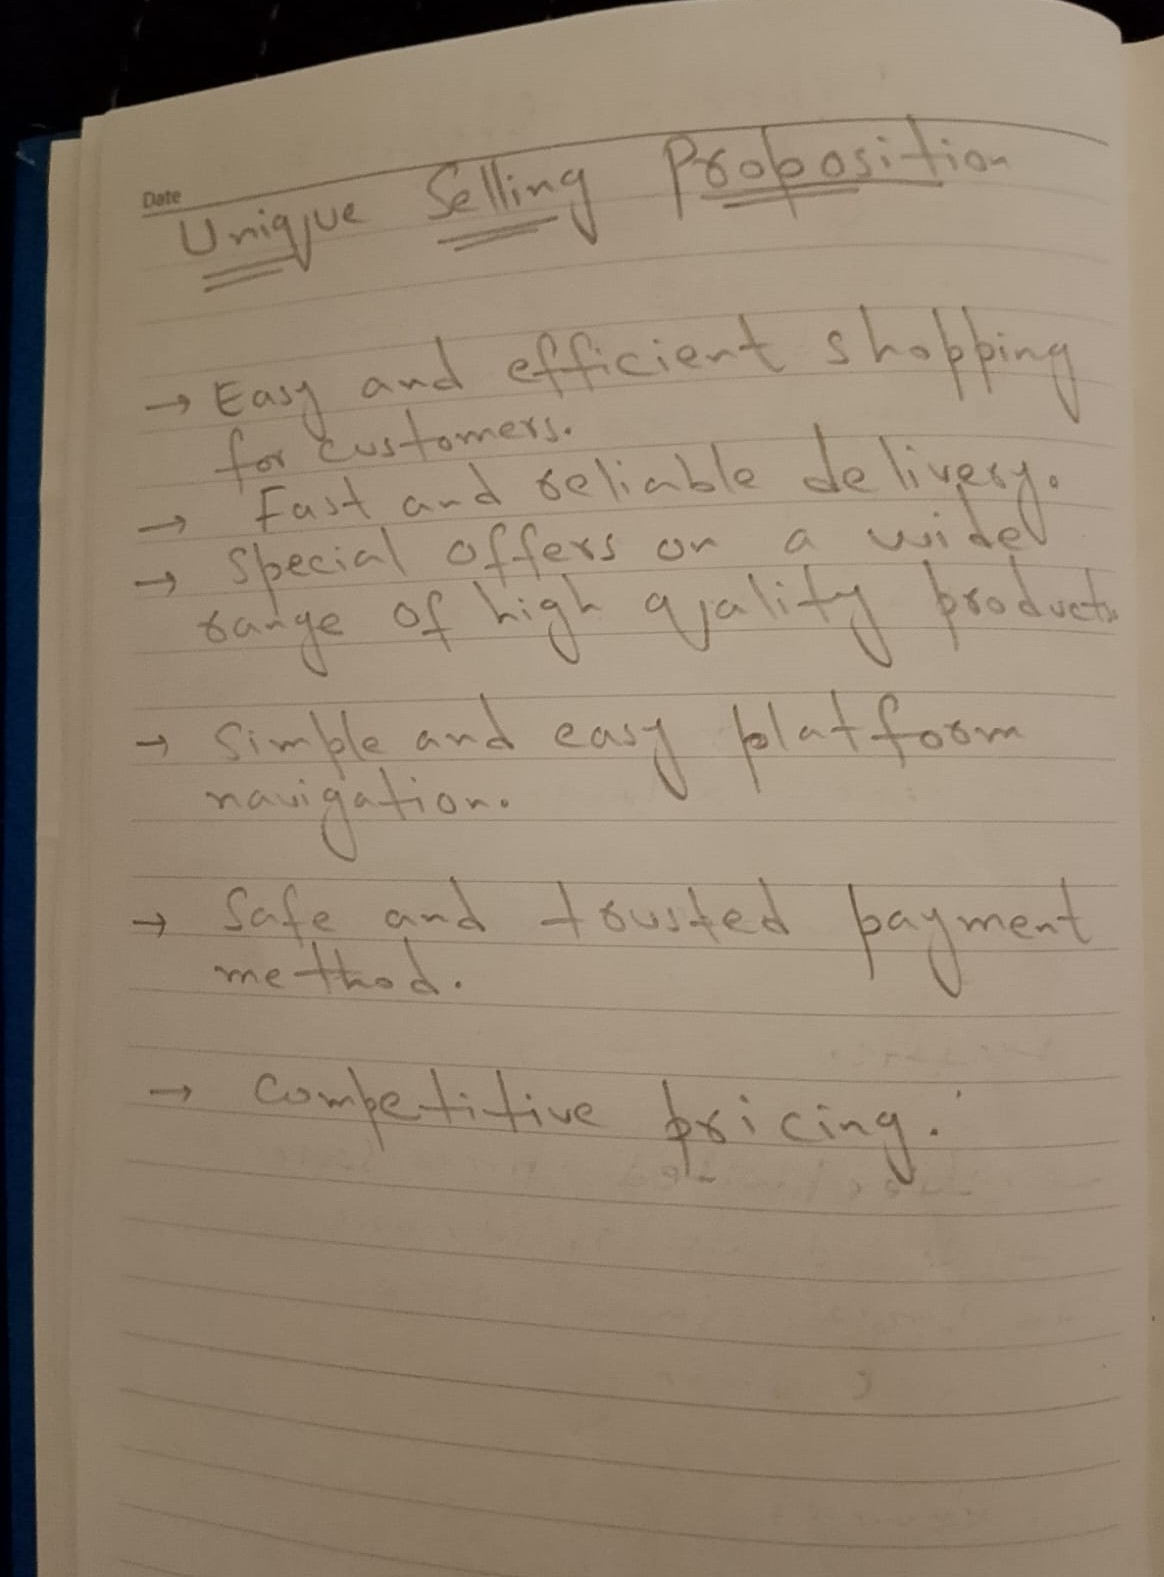 Date
Unique Selling Proposition
→ Easy and efficient shopping
for customers.
→ Fast and reliable delivery.
→ Special offers on a wide
range of high quality products
→ Simple and easy platform
navigation.
→ Safe and trusted payment
method.
→ Competitive pricing.